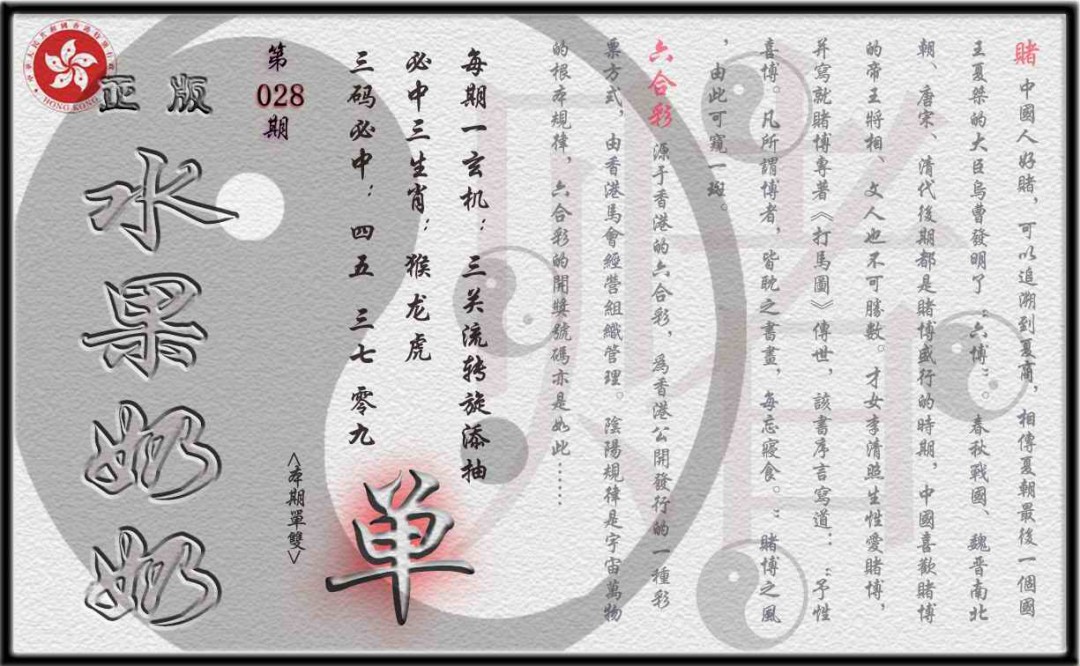 賭 中國人好賭，可以追溯到夏商，相傳夏朝最後一個國
王夏桀的大臣烏曹發明了〝六博〞。春秋戰國、魏晉南北
朝、唐宋、清代後期都是賭博盛行的時期，中國喜歡賭博
的帝王將相、文人也不可勝數。才女李清照生性愛賭博，
并寫就賭博專著《打馬圖》傳世，該書序言寫道：〝予性
喜博。凡所謂博者，皆耽之書畫，每忘寢食。〞賭博之風
，由此可窺一斑。
六合彩 源于香港的六合彩，為香港公開發行的一種彩
票方式，由香港馬會經營組織管理。陰陽規律是宇宙萬物
的根本規律，六合彩的開獎號碼亦是如此……
每期一玄机：三关流转旋添抽
必中三生肖：猴龙虎
三码必中：四五 三七 零九
单
<本期單雙>
第
028
期
正版
水果奶奶
HONG KONG